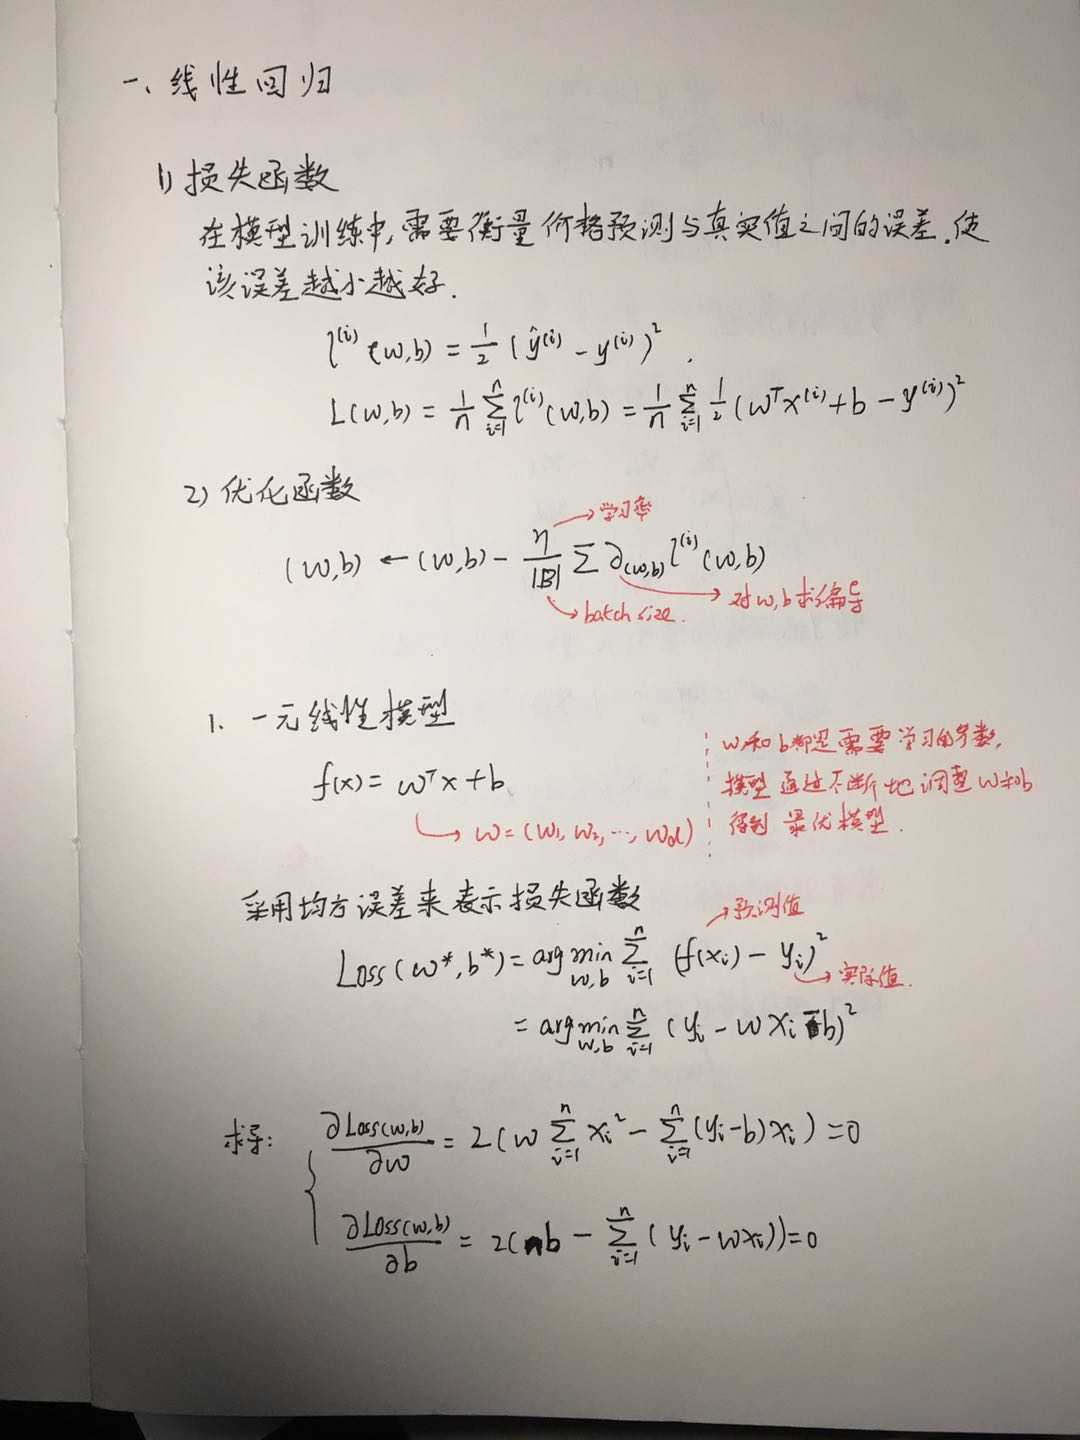 一、线性回归
1) 损失函数
在模型训练中,需要衡量价格预测与真实值之间的误差.使
该误差越小越好.
l^(i)(w,b) = 1/2 (ŷ^(i) - y^(i))^2 .
L(w,b) = 1/n Σ_{i=1}^{n} l^(i)(w,b) = 1/n Σ_{i=1}^{n} 1/2 (w^T x^(i) + b - y^(i))^2
2) 优化函数
→学习率
(w,b) ← (w,b) - η/|B| Σ ∂_(w,b) l^(i)(w,b)
→batch size. → 对w,b求偏导
1. 一元线性模型
w和b都是需要学习的参数,
f(x) = w^T x + b
模型通过不断地调整w和b
→ w = (w1, w2, ..., wd)
得到最优模型.
采用均方误差来表示损失函数
→预测值
Loss(w*,b*) = arg min_{w,b} Σ_{i=1}^{n} (f(xi) - yi)^2
→实际值.
= arg min_{w,b} Σ_{i=1}^{n} (yi - wxi - b)^2
求导: ∂Loss(w,b)/∂w = 2(w Σ_{i=1}^{n} xi^2 - Σ_{i=1}^{n} (yi-b)xi) = 0
∂Loss(w,b)/∂b = 2(nb - Σ_{i=1}^{n} (yi - wxi)) = 0